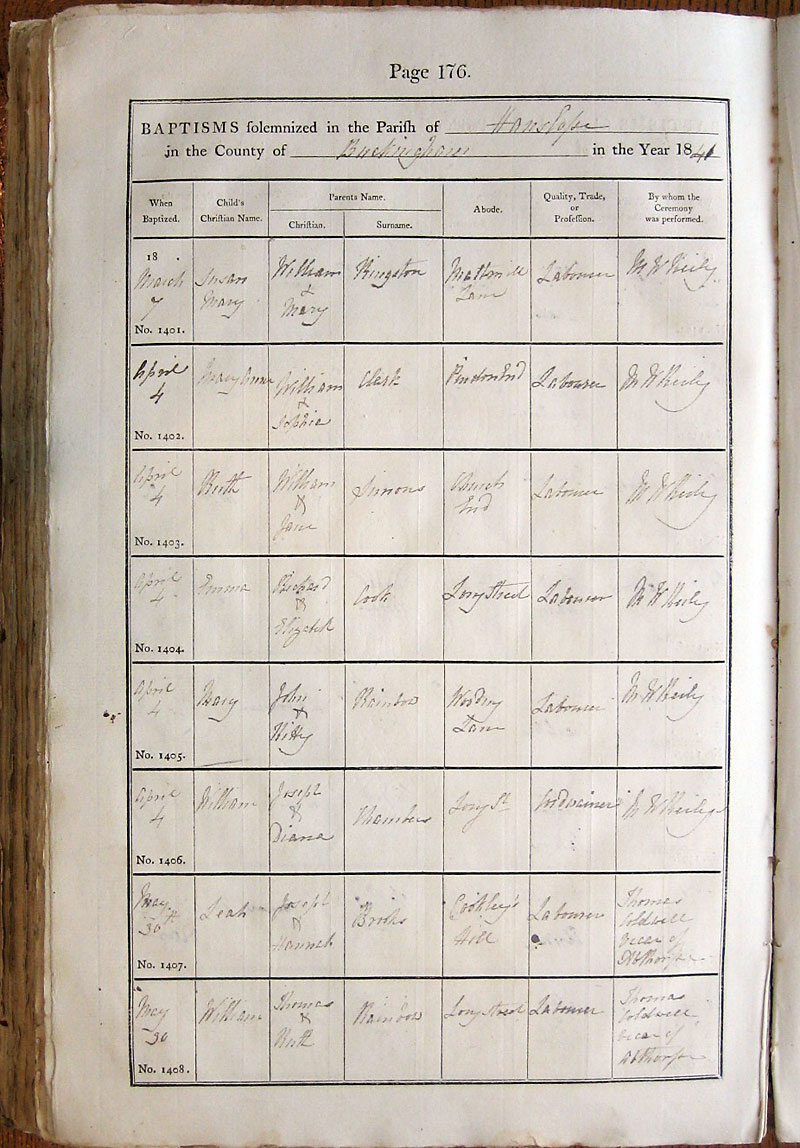 Page 176.
BAPTISMS solemnized in the Parish of Hanslope
in the County of Buckingham in the Year 1841
When Baptized. Child's Christian Name. Parents Name. Christian. Surname. Abode. Quality, Trade, or Profession. By whom the Ceremony was performed.
18
March Susan William Kingston Labourer
7 Mary & Mary Lane
No. 1401.
April Mary Anne William Clark Pindon End Labourer
4 & Sophia
No. 1402.
April Ruth William Simons Church Labourer
4 & Jane End
No. 1403.
April Emma Richard Cook Long Street Labourer
4 & Elizabeth
No. 1404.
April Mary John Rainbow Labourer
4 & Kitty Lane
No. 1405.
April William Joseph Chambers Long St Cordwainer
4 & Diana
No. 1406.
May Leah Joseph Brooks Labourer Thomas
30th & Hannah Hill Coldwell
Vicar of
Abthorpe
No. 1407.
May William Thomas Rainbow Long Street Labourer Thomas
30 & Ruth Coldwell
Vicar of
Abthorpe
No. 1408.